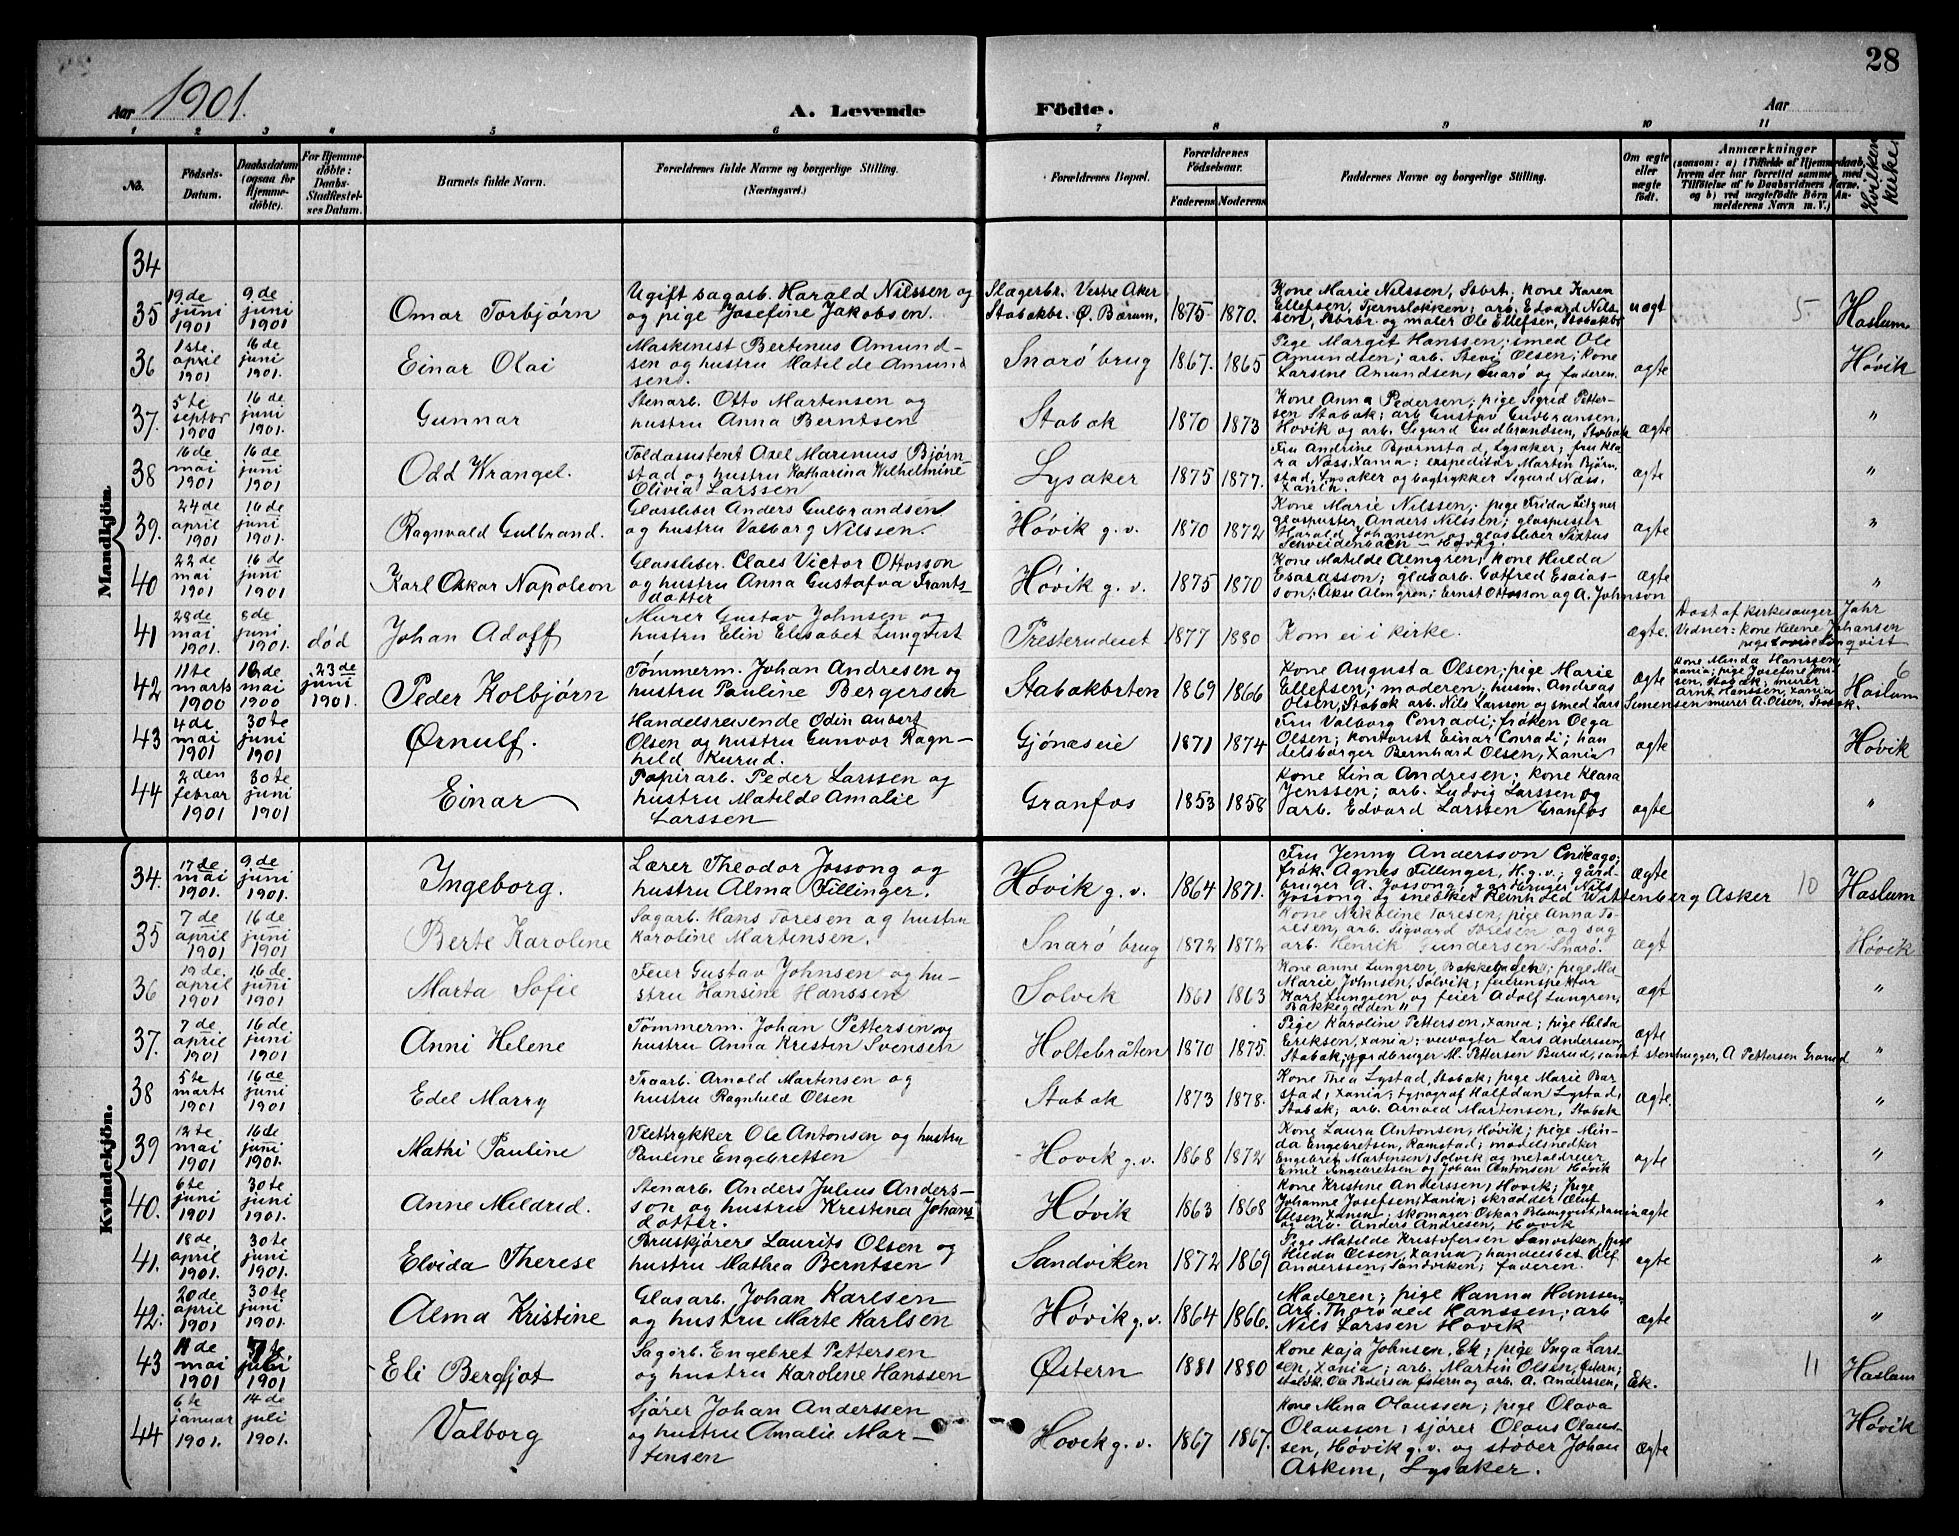 28
Aar 1901.
A. Levende Födte.
Aar
1 2 3 4 5 6 7 8 9 10 11
No.
Födsels-Datum.
Daabsdatum (ogsaa for Hjemme-döbte).
For Hjemme-döbte: Daabs-Stadfæstel-ses Datum.
Barnets fulde Navn.
Forældrenes fulde Navne og borgerlige Stilling. (Næringsvei.)
Forældrenes Bopæl.
Forældrenes Födselsaar.
Faderens Moderens
Faddernes Navne og borgerlige Stilling.
Om ægte eller uægte födt.
Anmærkninger
(saasom: a) i Tilfælde af Hjemmedaab, hvem der har forrettet samme, med Tilföielse af to Daabsvidners Navne, og b) ved uægtefödte Börn An-melderens Navn m. V.)
Hvilken kirke.
Mandkjön.
34
35 19de juni 1901 9de juni 1901 Omar Torbjørn Ugift sagarb. Harald Nilssen og og pige Josefine Jakobsen. Slagerbr. Vestre Aker Stabakbr. Ø. Bærum. 1875 1870. Kone Marie Nilssen, Stbrt; kone Karen Ellefsen, Tjernslokken; arb. Edvard Nils-sen, Stbrbr. og maler Ole Ellefsen, Stabakbr uægt 5. Haslum
36 1ste april 1901 16de juni 1901. Einar Olai Maskinist Bertinus Amund-sen og hustru Matilde Amund sen. Snarøbrug 1867. 1865 Pige Margit Hanssen; smed Ole Amundsen; arb. Olsen; kone Larsine Amundsen, Snarø og faderen. ægte Høvik
37. 5te septbr 1900 16de juni 1901. Gunnar Stenarb. Otto Martensen og hustru Anna Berntsen Stabak 1870 1873 Kone Anna Pedersen; pige Sigrid Petter-sen Stabak; arb Gustav Gudbransen, Høvik og arb. Sigurd Gudbrandsen, Stabak ægte "
38 16de mai 1901 16de juni 1901 Odd Wrangel. Toldassistent Axel Marinius Bjørn-stad og hustru Katharina Wilhelmine Olivia Larssen Lysaker 1875 1877. Fru Andrine Bjørnstad, Lysaker; fru Kla ra Næss, Xania; expeditør Martin Bjørn stad, Lysaker og bogtrykker Sigurd Næss, Xania. ægte "
39. 24de april 1901 16de juni 1901. Ragnvald Gulbrand. Glassliber Anders Gulbrandsen og hustru Valborg Nilssen. Høvik g.v. 1870 1872 Kone Marie Nilssen; pige Frida glaspuster Anders Nilssen; glaspuster Harald Johansen og glassliber Sixtus Schveidenbach - Høvikg. ægte "
40 22de mai 1901 16de juni 1901. Karl Oskar Napoleon Glassliber. Claes Victor Ottosson og hustru Anna Gustafva Frants-dotter Høvik g.v. 1875 1870 Kone Matilde Almgren; kone Hulda Esaiasson; glasarb. Gotfred Esaias-son; Akse Almgren; Ernst Ottosson og A. Johnson ægte "
41 28de mai 1901. 8de juni 1901. død Johan Adolf Murer Gustav Johnsen og hustru Elin Elisabet Lunqvist Presterudeset 1877 1880 Kom ei i kirke. ægte. Døbt af kirkesanger Jahr Vidner: kone Helene Johansen pige Lovise Linqvist
42 11te marts 1900 16de mai 1900 23de juni 1901. Peder Kolbjørn Tømmerm. Johan Andresen og hustru Pauline Bergersen Stabakbråten 1869 1866 Kone Augusta Olsen; pige Marie Ellefsen; moderen; husm. Andreas Olsen, Stabak arb. Nils Larssen og smed Lars Simensen ægte Kone Minda Hanssen, Xania; pige Josefine Jens-sen, Stabak; murer Arnt Hanssen, Xania murer A. Olsen, Stabak. 6 Haslum
43 4de mai 1901 30te juni 1901 Ørnulf. Handelsreisende Odin Aubert Olsen og hustru Gunvor Ragn-hild Kurud. Gjønæseie 1871 1874 Fru Valborg Conradi; frøken Olga Olsen; kontorist Einar Conradi; han delsborger Bernhard Olsen, Xania ægte Høvik
44 2den febrar 1901 30te juni 1901 Einar Papirarb. Peder Larssen og hustru Matilde Amalie Larssen Granfos 1853 1858 Kone Lina Andresen; kone Klara Jenssen; arb. Ludvig Larssen og arb. Edvard Larssen Granfos ægte "
Kvindekjön.
34. 17de mai 1901. 9de juni 1901. Ingeborg. Lærer Theodor Jossong og hustru Alma Fillinger. Høvik g.v. 1864 1871. Fru Jenny Andersson Chikago; frøk. Agnes Fillinger, H.g.v.; gård-bruger A. Jossong; gardbruger Nils Jossong og snedker Reinhold Wittenberg Asker ægte 10 Haslum
35 7de april 1901 16de juni 1901 Berte Karoline Sagarb. Hans Toresen og hustru Karoline Martensen. Snarøbrug 1872 1872 Kone Nikoline Toresen; pige Anna To-resen, arb. Sigvard Toresen og sag arb. Henrik Gundersen Snarø. ægt Høvik
36 19de april 1901 16de juni 1901. Marta Sofie Feier Gustav Johnsen og hu-stru Hansine Hanssen Solvik 1861 1863 Kone Anne Lungren, Bakkegaden; pige Ma Marie Johnsen, Solvik; feierinspektør Karl Lungren og feier Adolf Lungren, Bakkegaden " ægt "
37. 7de april 1901 16de juni 1901 Anni Helene Tømmerm. Johan Pettersen og hustru Anna Kristin Svensen Holtebråten 1870 1875. Pige Karoline Pettersen, Xania; pige Hilda Eriksen, Xania; veivogter Lars Andersen, Stabak; gardbruger M. Pettersen Burud, samt stenhugger, A Pettersen ægte "
38 5te marts 1901 16de juni 1901 Edel Marry Traarb. Arnold Martensen og hustru Ragnhild Olsen Stabak 1873 1878. Kone Thea Lystad, Stabak; pige Marie Bar stad, Xania; typograf Halfdan Lystad, Stabak; arb. Arnold Martensen, Stabak ægte. "
39 12te mai 1901 16de juni 1901. Mathi Pauline Olettrykker Ole Antonsen og hustru Pauline Engebretsen Høvik g.v. 1868 1872 Kone Laura Antonsen, Høvik; pige Min-da Engebretsen, Ramstad; modelsnedker Engebret Martensen, Solvik og metaldreier Emil Engebretsen og Johan Antonsen Høvik ægte "
40. 6te juni 1901 30te juni 1901. Anne Mildrid. Stenarb. Anders Julius Anders-son og hustru Kristina Johans dotter. Høvik 1863 1868 Kone Kristine Anderssen, Høvik; pige Johanne Josefsen, Xania; skrædder Oluf Olsen Xania; skomager Oskar Blomqvist, Xania og arb. Anders Andresen, Høvik ægte "
41. 18de april 1901. 30te juni 1901. Elvida Therese Bruskjører Laurits Olsen og hustru Mathea Berntsen Sandviken 1872 1869 Pige Matilde Kristofersen Sanviken, pige Hilda Olsen, Xania; handelsbet. Alf Anderssen, Sandviken; faderen. ægte "
42. 20de april 1901 30te juni 1901. Alma Kristine Glasarb. Johan Karlsen og hustru Marte Karlsen Høvik g.v. 1864 1866. Moderen; pige Hanna Hanssen. arb. Thorvald Hanssen; arb Nils Larssen Høvik ægte "
43 11de mai 1901 7te juli 1901 Eli Bergljot Sagarb. Engebret Pettersen og hustru Karoline Hanssen Østern 1881 1880 Kone Kaja Johnsen, Ek; pige Inga Lars-sen, Xania; arb. Martin Olsen, Østern; Ole Pedersen Østern og arb. A. Anderssen, Ek. 11 Haslum
44 6te januar 1901. 14de juli 1901. Valborg Sjører Johan Anderssen og hustru Amalie Mar-tensen Høvik g.v. 1867 1867. Kone Mina Olaussen; pige Olava Olaussen; sjører Olaus Olaus-sen, Høvik g.v. og støber Johan Askim, Lysaker. ægte Høvik